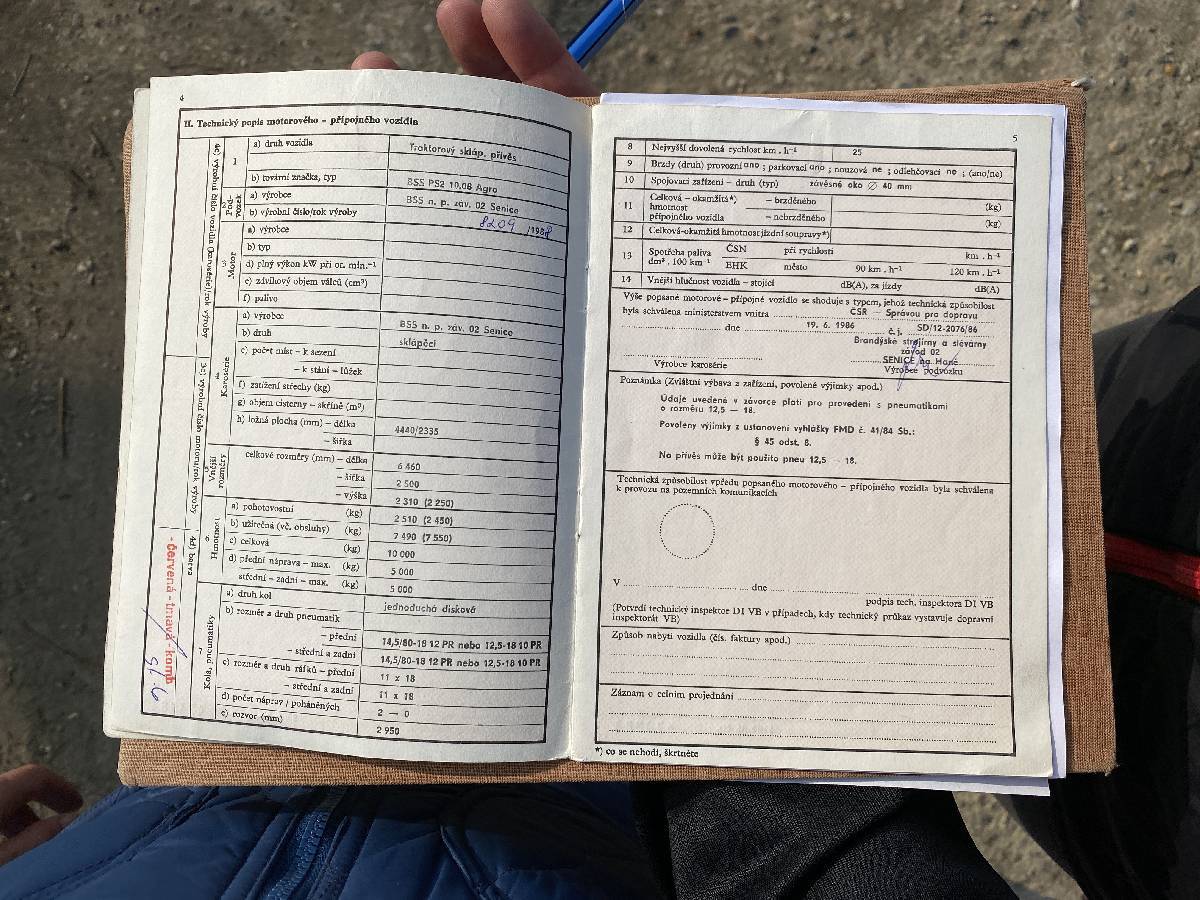 4
II. Technický popis motorového – přípojného vozidla
4c) výrobní číslo vozidla (karosérie)/rok výroby
3c) výrobní číslo motoru/rok výroby
4d) barva
- červená - tmavá - komb
1
a) druh vozidla Traktorový skláp. přívěs
b) tovární značka, typ BSS PS2 10.08 Agro
Podvozek
a) výrobce BSS n. p. záv. 02 Senice
b) výrobní číslo/rok výroby 8209 /1988
Motor
a) výrobce
b) typ
d) plný výkon kW při ot. min.⁻¹
e) zdvihový objem válců (cm³)
f) palivo
Karosérie
a) výrobce BSS n. p. záv. 02 Senice
b) druh sklápěcí
c) počet míst – k sezení
– k stání – lůžek
f) zatížení střechy (kg)
g) objem cisterny – skříně (m³)
h) ložná plocha (mm) – délka 4440/2335
– šířka
Vnější rozměry
celkové rozměry (mm) – délka 6 460
– šířka 2 500
– výška 2 310 (2 250)
Hmotnosti
a) pohotovostní (kg) 2 510 (2 450)
b) užitečná (vč. obsluhy) (kg) 7 490 (7 550)
c) celková (kg) 10 000
d) přední náprava – max. (kg) 5 000
střední – zadní – max. (kg) 5 000
Kola, pneumatiky
a) druh kol jednoduchá disková
b) rozměr a druh pneumatik
– přední 14,5/80-18 12 PR nebo 12,5-18 10 PR
– střední a zadní 14,5/80-18 12 PR nebo 12,5-18 10 PR
c) rozměr a druh ráfků – přední 11 x 18
– střední a zadní 11 x 18
d) počet náprav / poháněných 2 — 0
e) rozvor (mm) 2 950
5
8 Nejvyšší dovolená rychlost km . h⁻¹ 25
9 Brzdy (druh) provozní ano ; parkovací ano ; nouzová ne ; odlehčovací ne ; (ano/ne)
10 Spojovací zařízení – druh (typ) závěsné oko ∅ 40 mm
11 Celková – okamžitá*) – brzděného (kg)
hmotnost
přípojného vozidla – nebrzděného (kg)
12 Celková-okamžitá hmotnost jízdní soupravy*)
13 Spotřeba paliva ČSN při rychlosti km . h⁻¹
dm³ . 100 km⁻¹ EHK město 90 km . h⁻¹ 120 km . h⁻¹
14 Vnější hlučnost vozidla – stojící dB(A), za jízdy dB(A)
Výše popsané motorové – přípojné vozidlo se shoduje s typem, jehož technická způsobilost
byla schválena ministerstvem vnitra ČSR — Správou pro dopravu
dne 19. 6. 1986 č. j. SD/12-2076/86
Brandýské strojírny a slévárny
závod 02
SENICE na Hané
Výrobce karosérie Výrobce podvozku
Poznámka (Zvláštní výbava a zařízení, povolené výjimky apod.)
Údaje uvedené v závorce platí pro provedení s pneumatikami
o rozměru 12,5 — 18.
Povoleny výjimky z ustanovení vyhlášky FMD č. 41/84 Sb.:
§ 45 odst. 8.
Na přívěs může být použito pneu 12,5 — 18.
Technická způsobilost vpředu popsaného motorového – přípojného vozidla byla schválena
k provozu na pozemních komunikacích
V dne
podpis tech. inspektora DI VB
(Potvrdí technický inspektor DI VB v případech, kdy technický průkaz vystavuje dopravní
inspektorát VB)
Způsob nabytí vozidla (čís. faktury apod.)
Záznam o celním projednání
*) co se nehodí, škrtněte